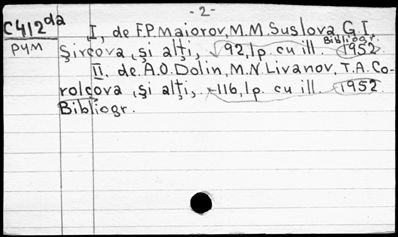 -2-
C412da
рум
I, de F.P. Maiorov, M.M. Suslova, G.I.
Şircova, şi alţi, 92,1p. cu ill. Bibliogr. 1952
II, de A.O. Dolin, M.N. Livanov, T.A. Co-
rolcova, şi alţi, 116,1p. cu ill. 1952
Bibliogr.